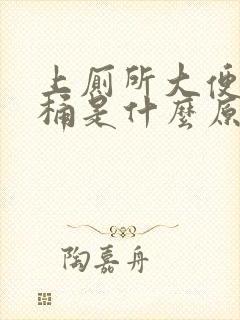 上厠所大便
桶是什麼原
陶嘉舟